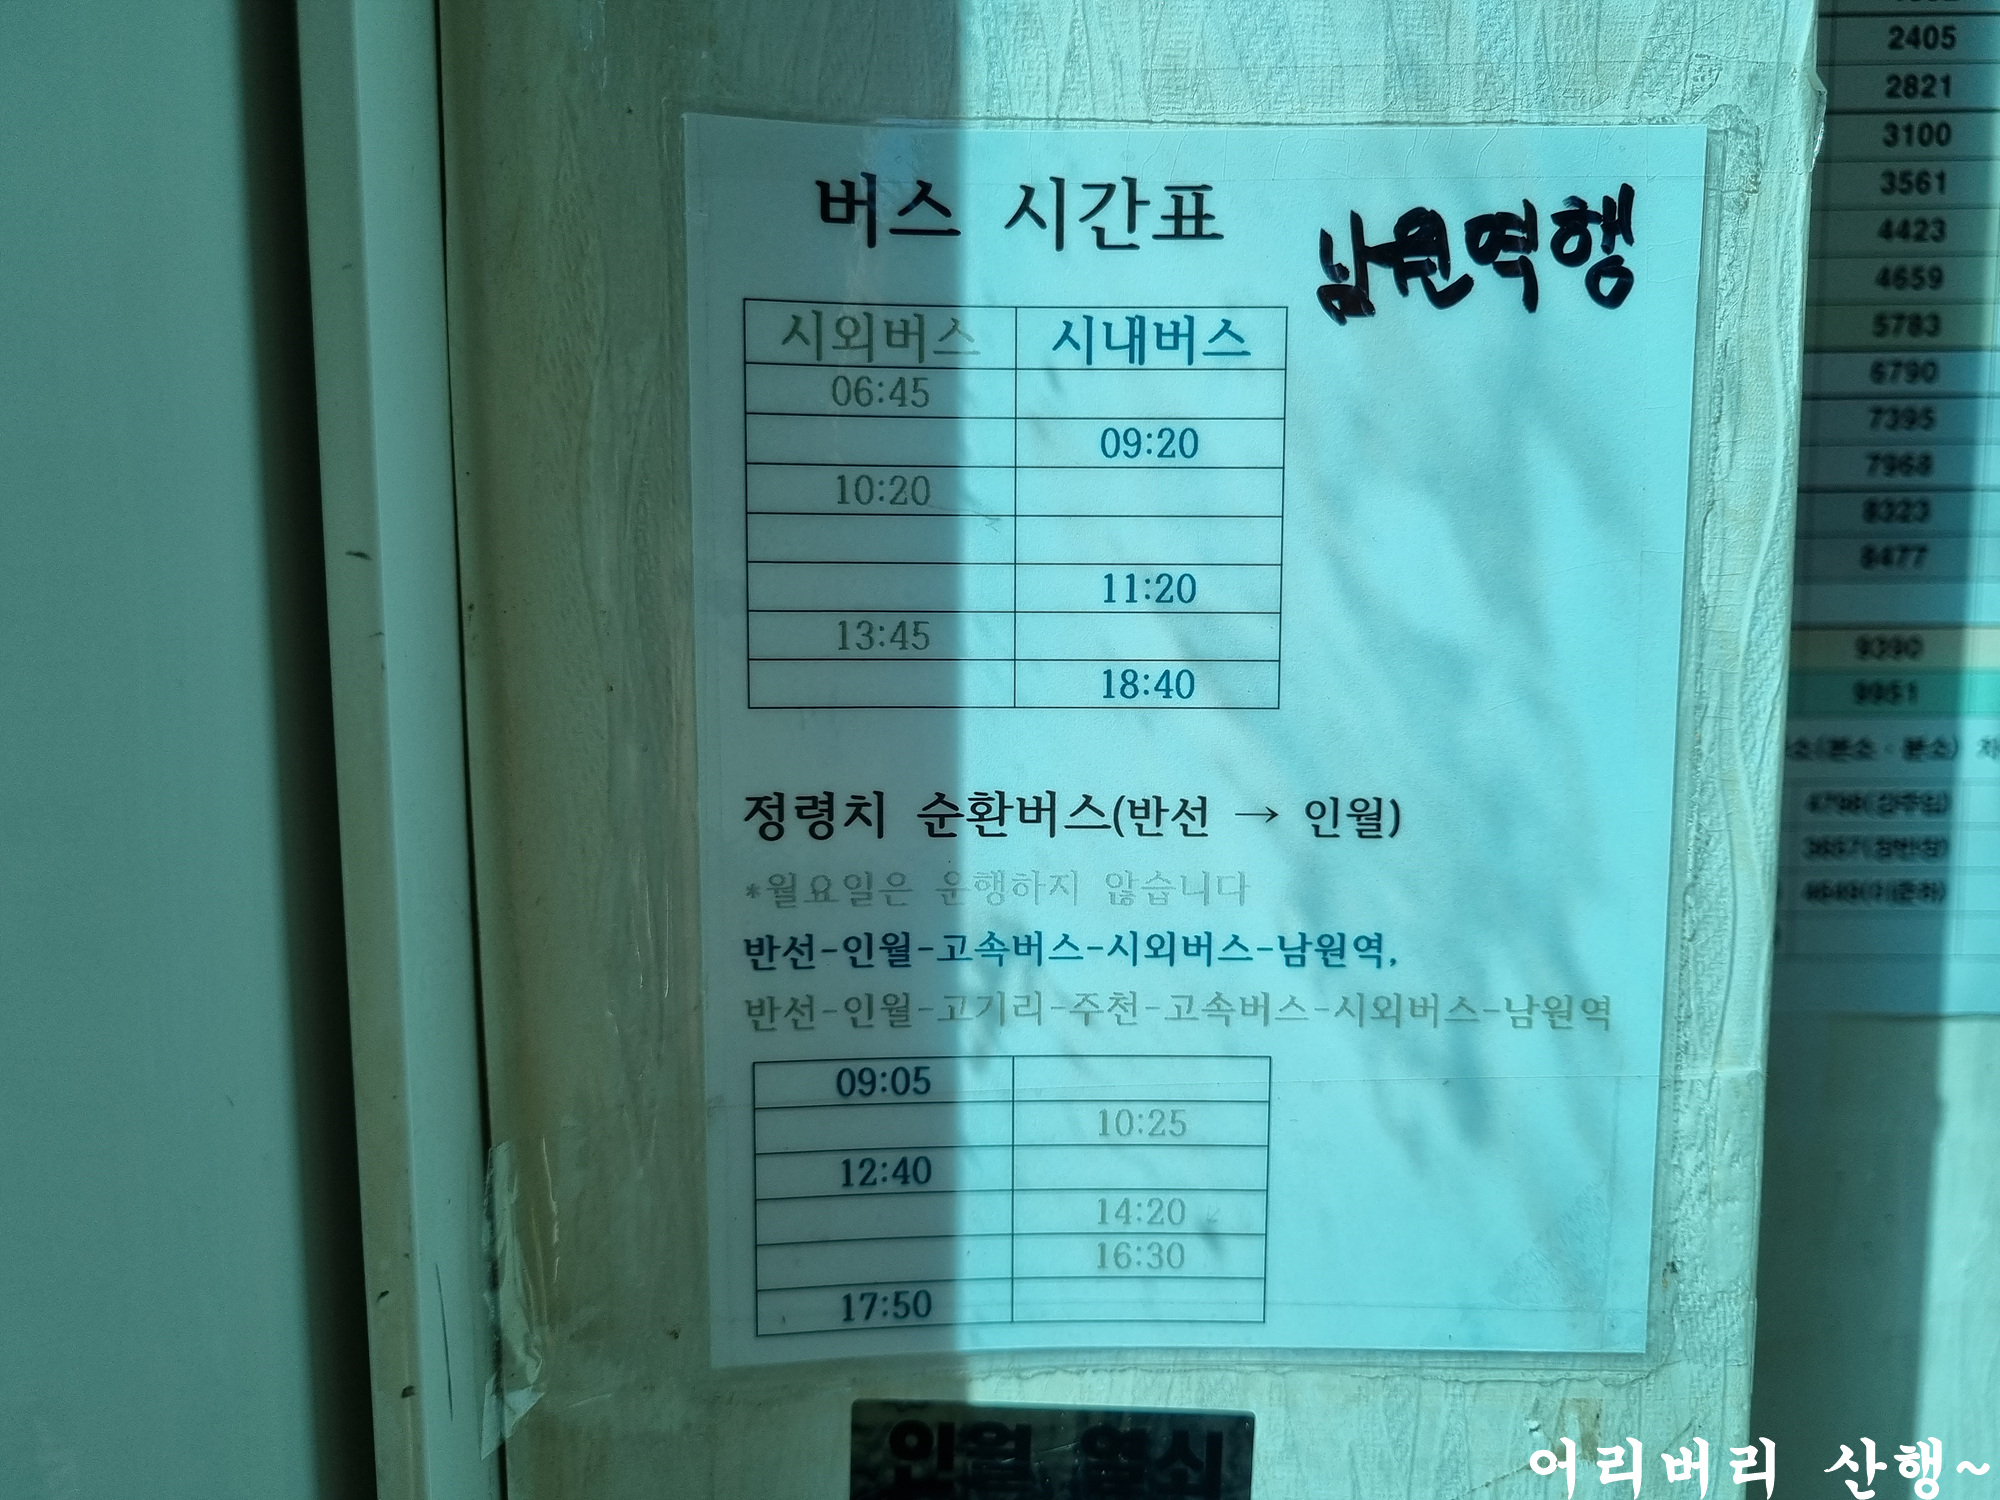 버스 시간표 남원역행
시외버스 시내버스
06:45
09:20
10:20
11:20
13:45
18:40
정령치 순환버스(반선 → 인월)
*월요일은 운행하지 않습니다
반선-인월-고속버스-시외버스-남원역,
반선-인월-고기리-주천-고속버스-시외버스-남원역
09:05
10:25
12:40
14:20
16:30
17:50
2405
2821
3100
3561
4423
4659
5783
6790
7395
7968
8323
8477
9390
9951
인월 열쇠
어리버리 산행~